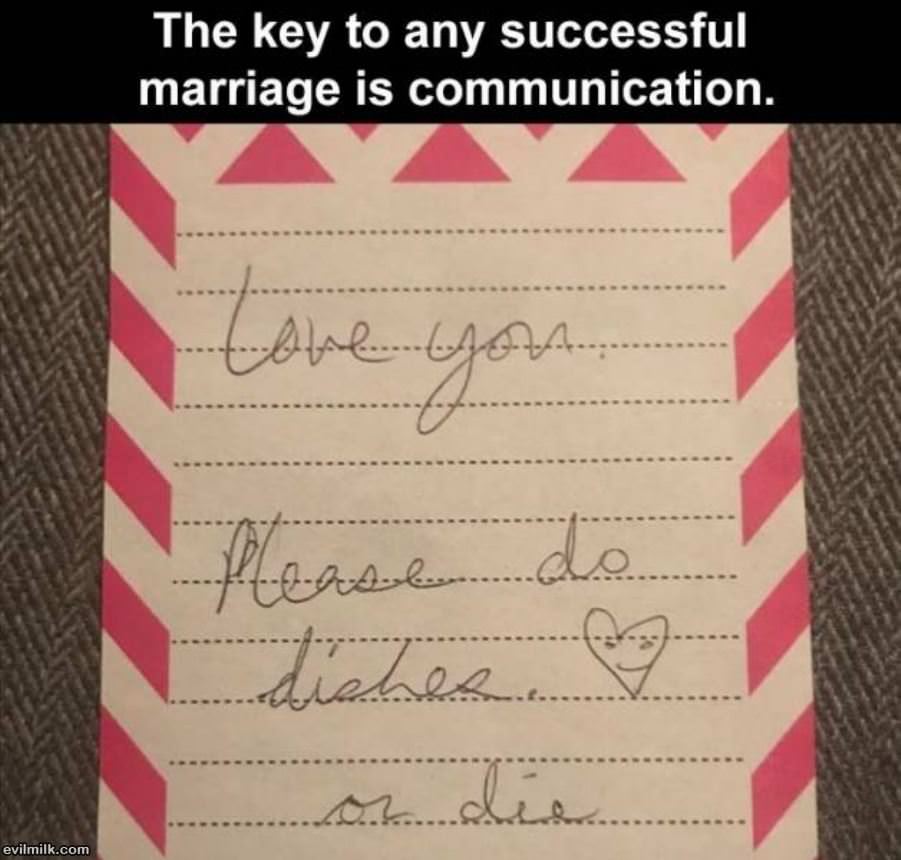 The key to any successful
marriage is communication.
Love you.
Please do
dishes.
or die
evilmilk.com